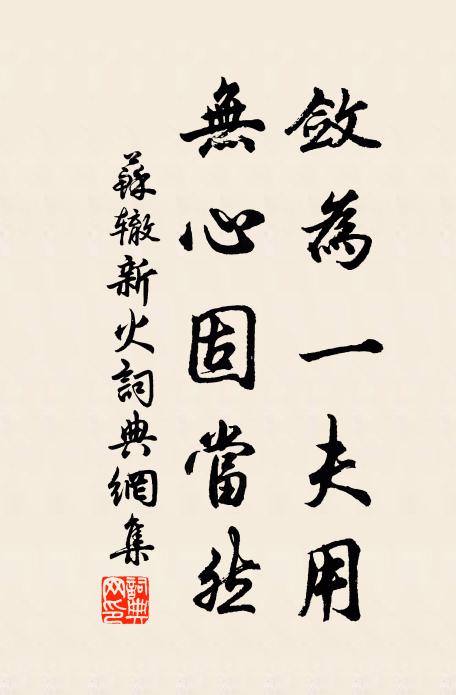 斂為一夫用
無心固當然
蘇辙新火詞典網集
詞典網印